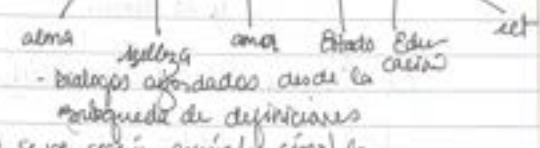 alma belleza amor Estado Edu- ect
cación
- Dialogos abordados desde la
búsqueda de definiciones
se ve